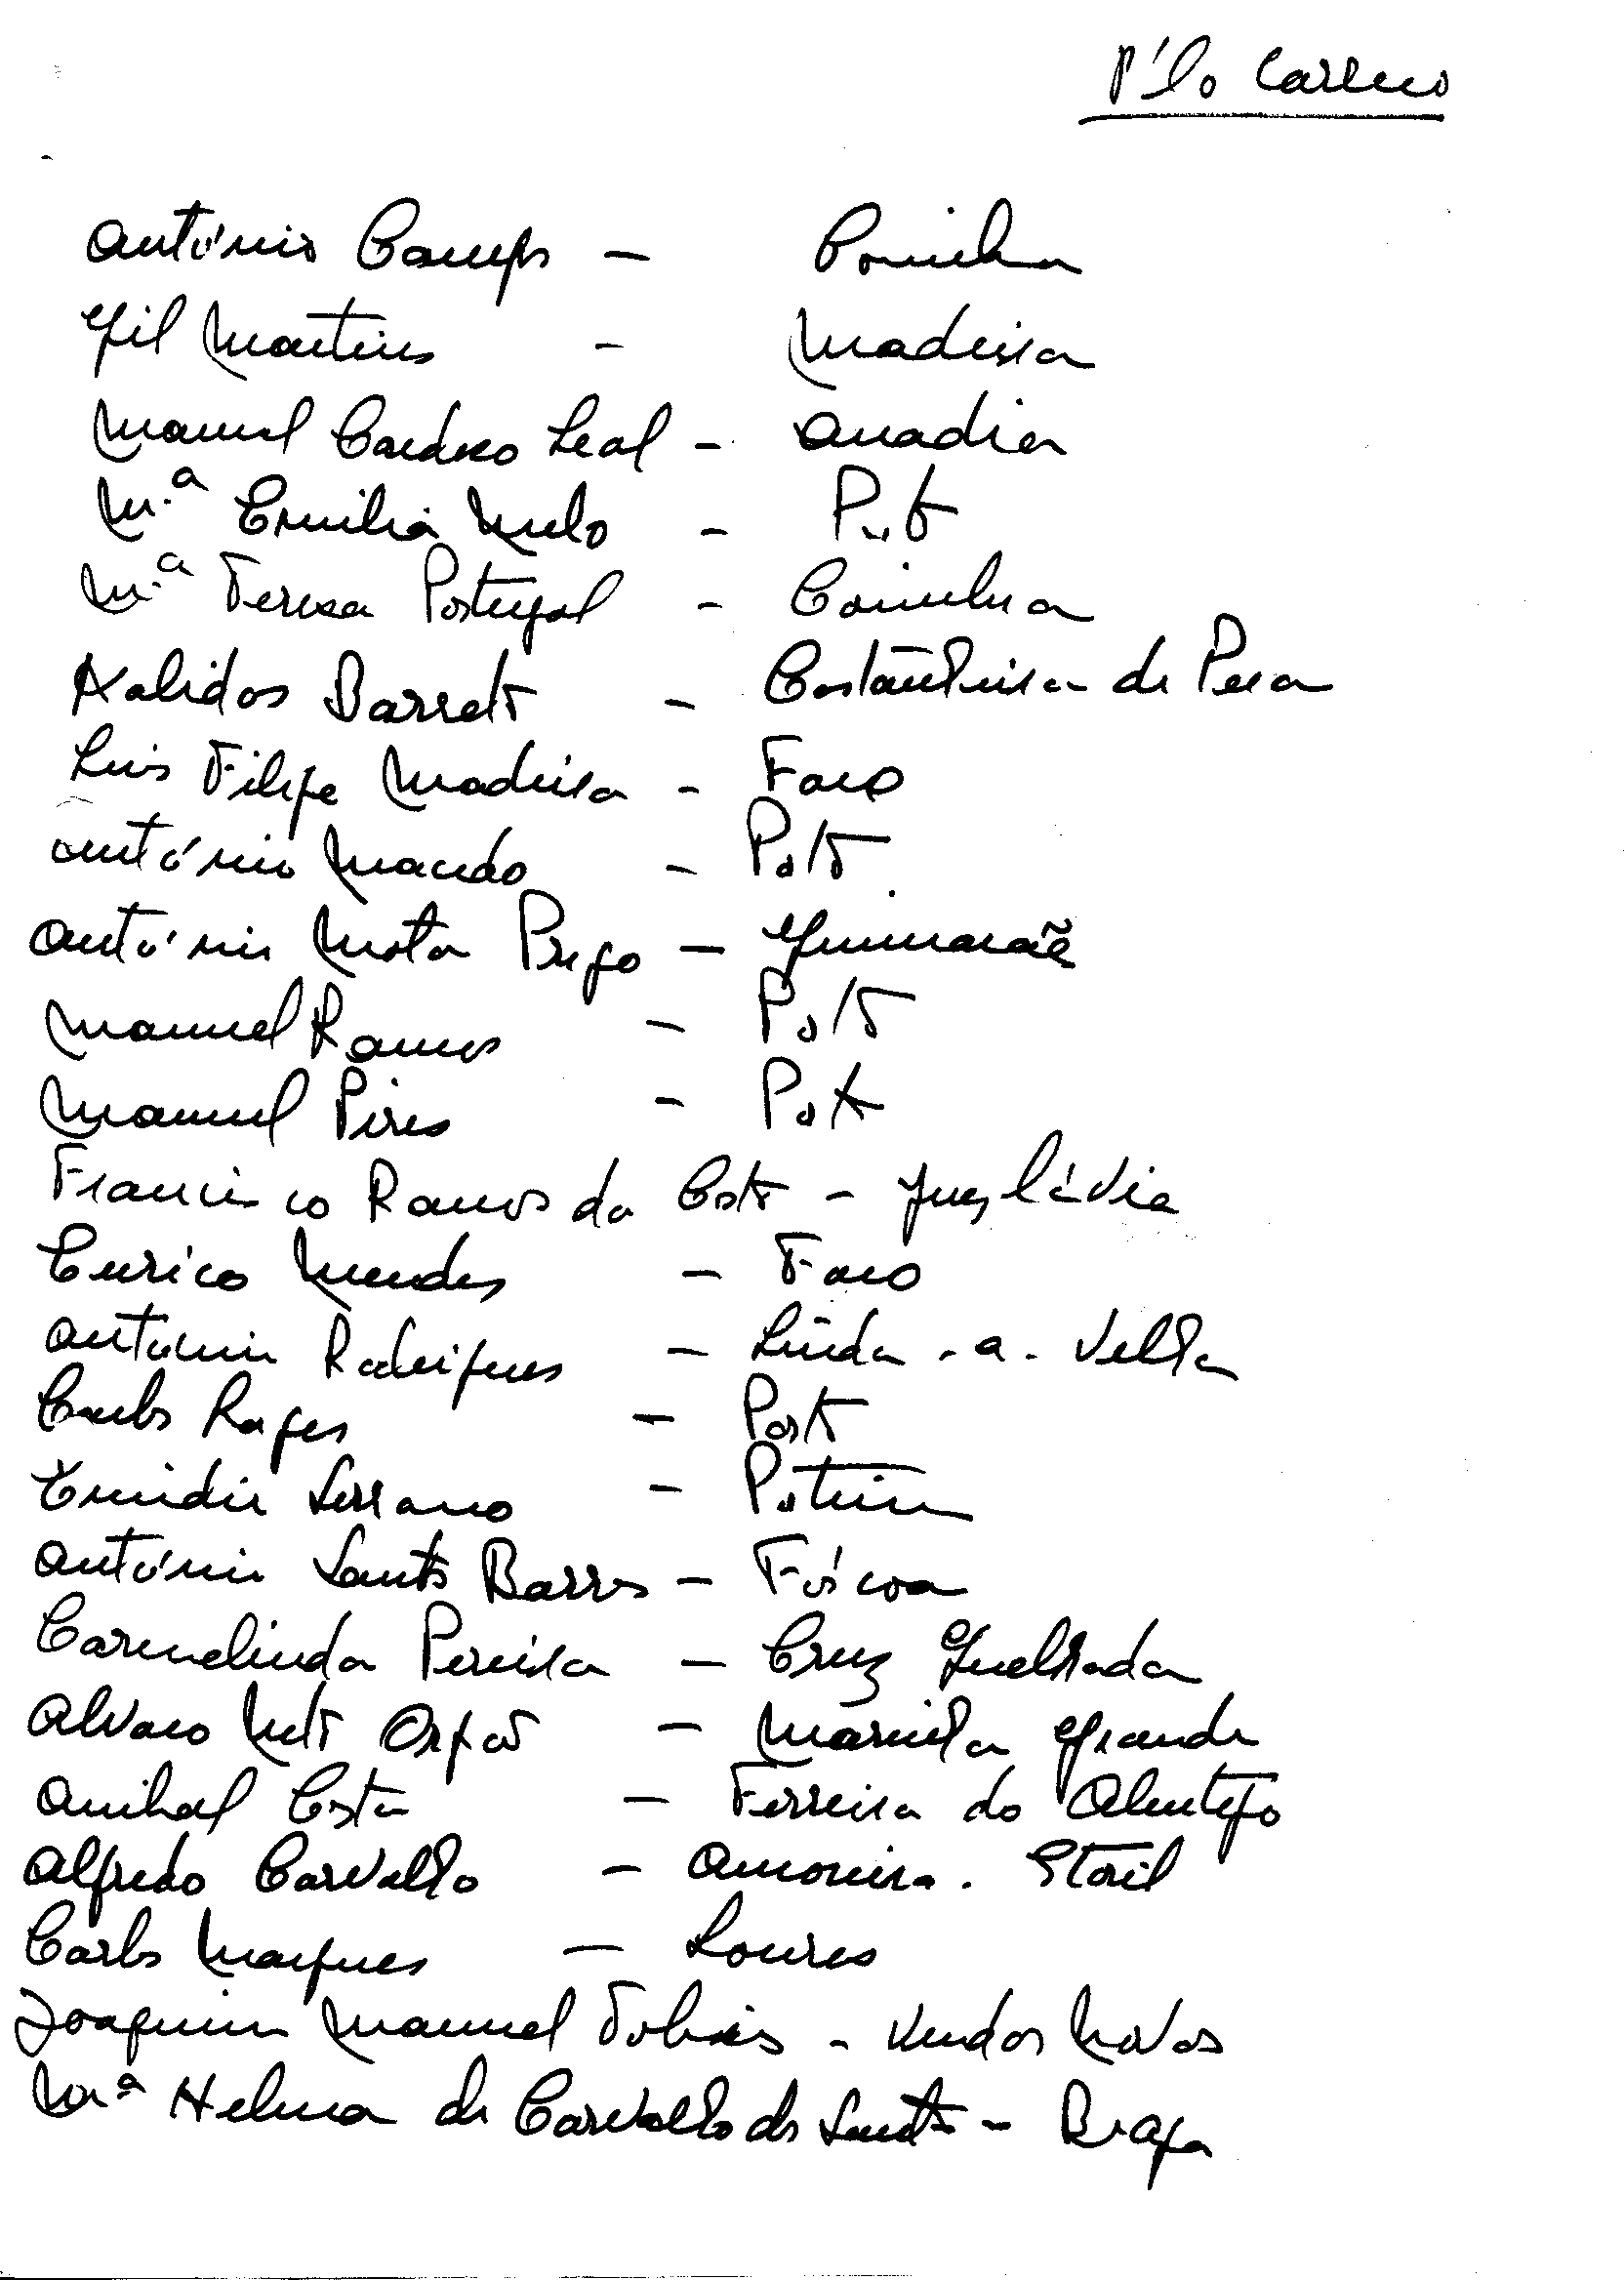 P'lo Correio
António Campos - Coimbra
Gil Martins - Madeira
Manuel Cardoso Leal - Anadia
M.ª Emilia Melo - Porto
M.ª Teresa Portugal - Coimbra
Kalidas Barreto - Castanheira de Pera
Luis Filipe Madeira - Faro
António Macedo - Porto
António Mota Prego - Guimarães
Manuel Ramos - Porto
Manuel Pires - Porto
Francisco Ramos da Costa - Jugslávia
Eurico Mendes - Faro
António Rodrigues - Linda-a-Velha
Carlos Lages - Porto
Emidio Serrano - Portimão
António Santos Barros - Fóscoa
Carmelinda Pereira - Cruz Quebrada
Alvaro Neto Orfão - Marinha Grande
Anibal Costa - Ferreira do Alentejo
Alfredo Carvalho - Amoreira. Estoril
Carlos Marques - Loures
Joaquim Manuel Tobias - Vendas Novas
M.ª Helena de Carvalho dos Santos - Braga